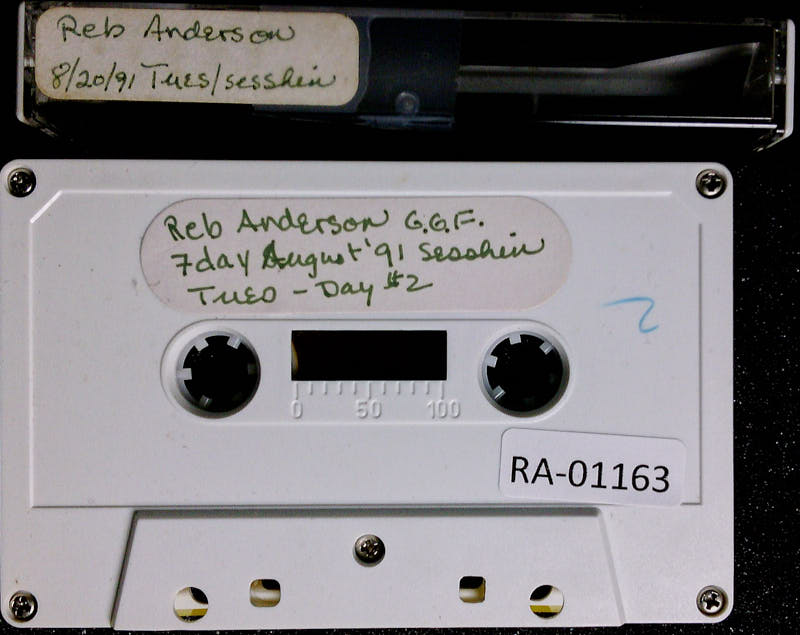 Reb Anderson
8/20/91 Tues/sesshin
Reb Anderson G.G.F.
7day August '91 Sesshin
Tues - Day #2
2
0 50 100
RA-01163